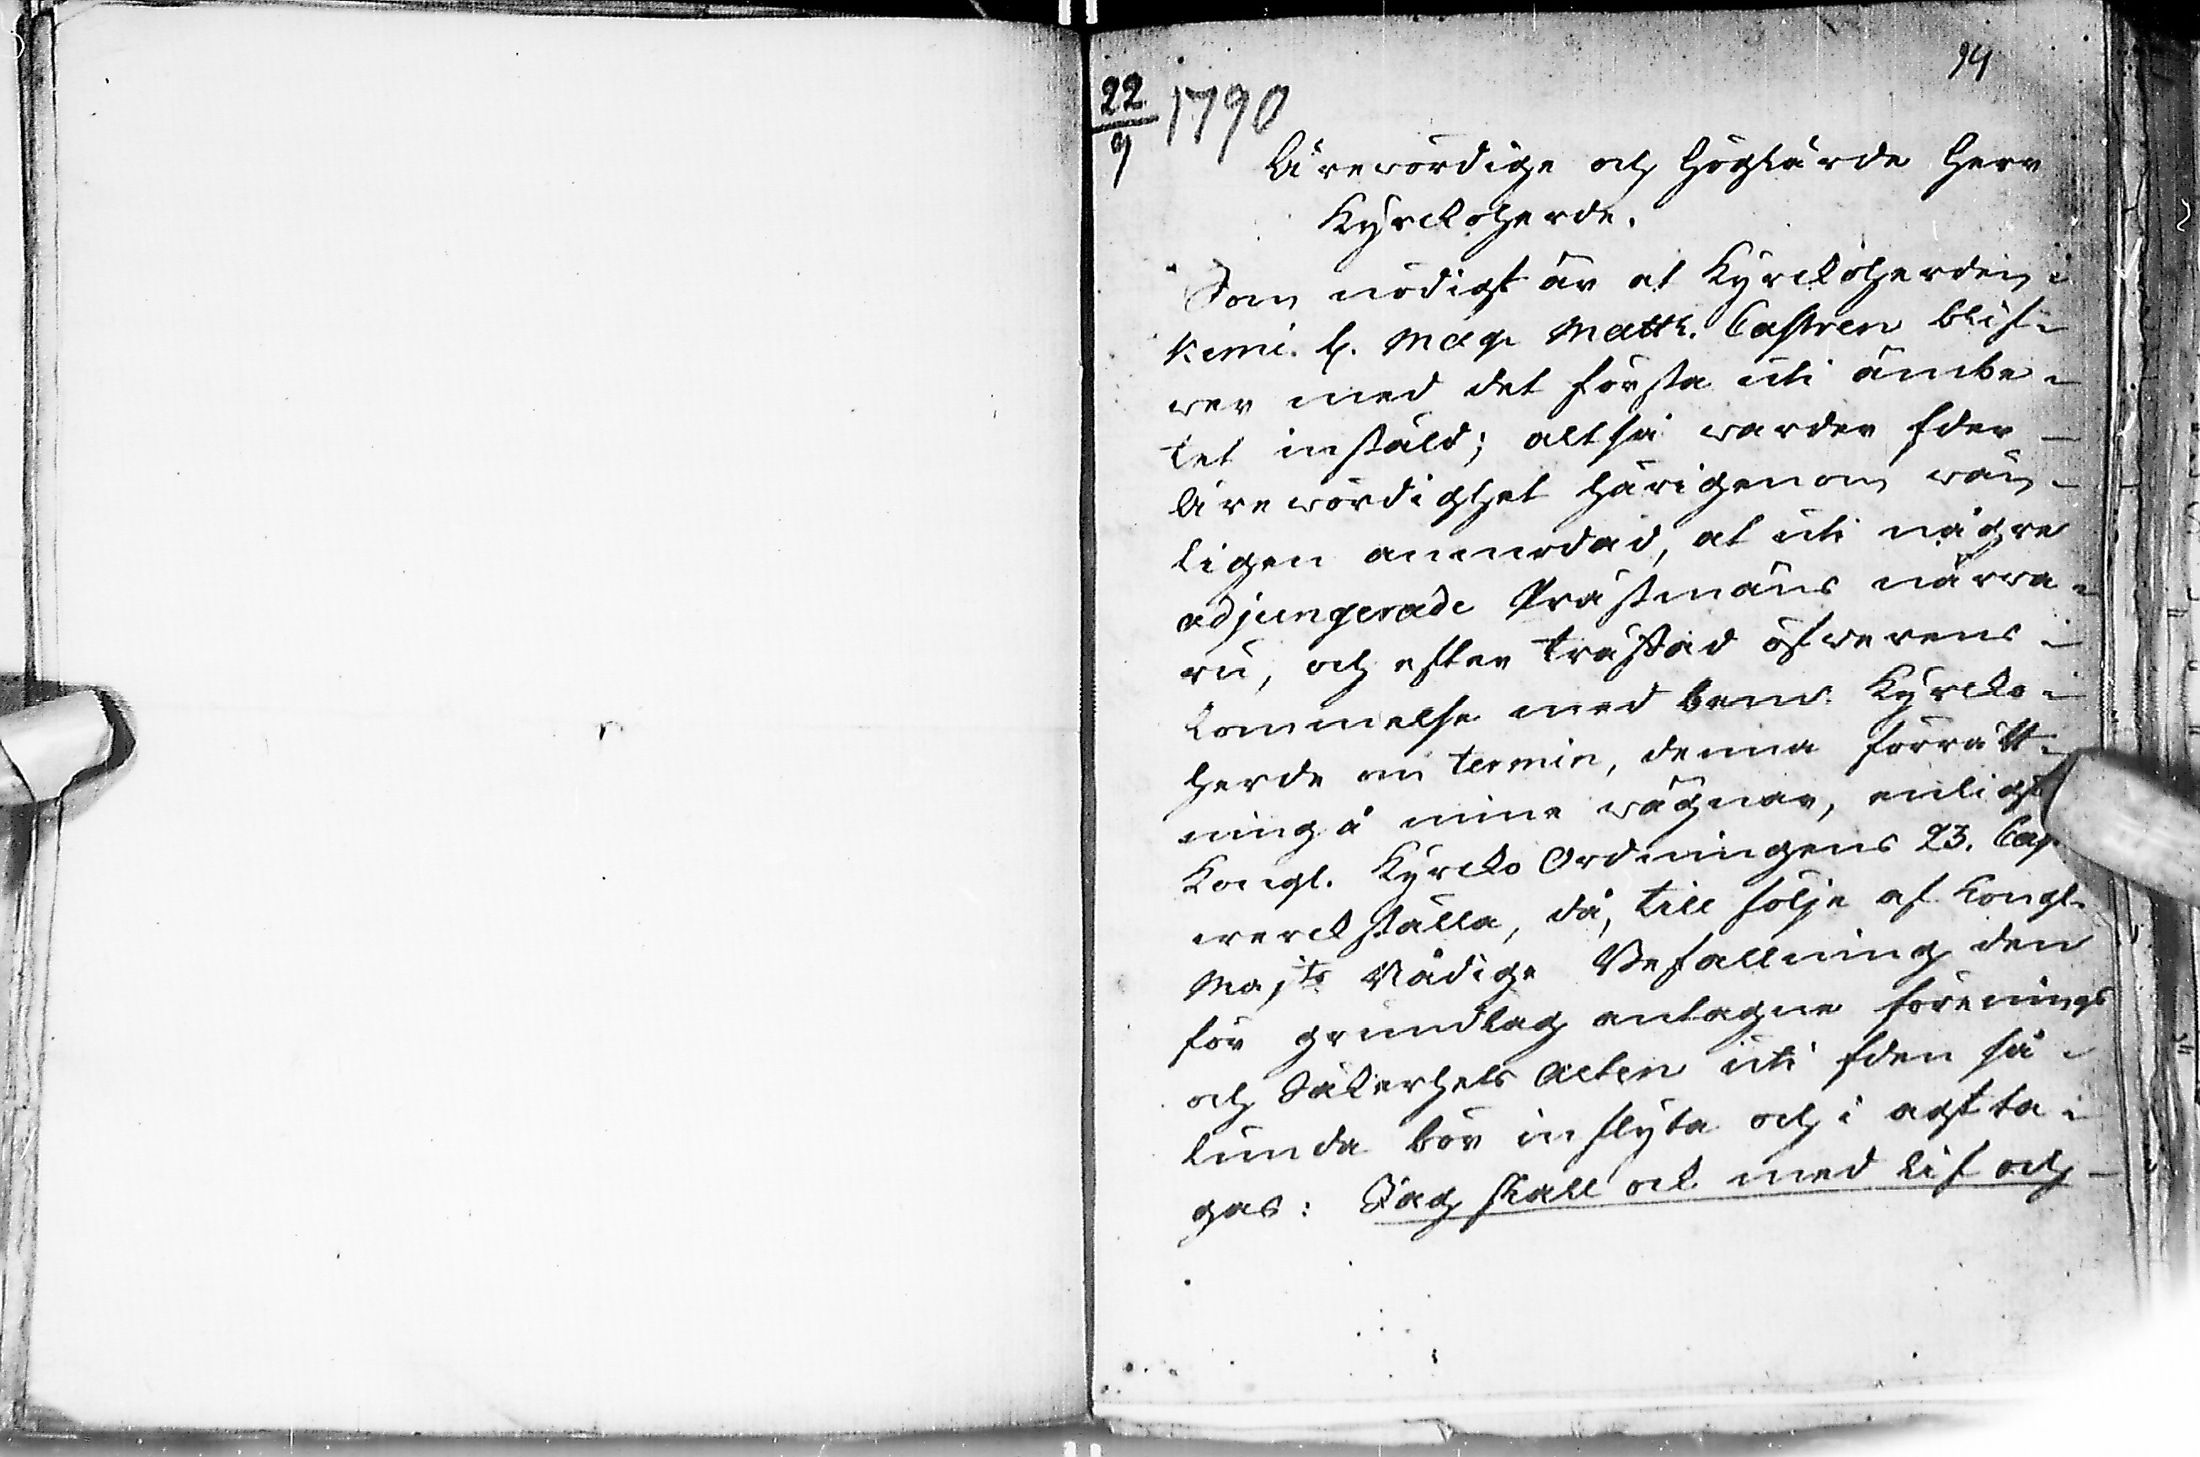 94
22/9 1790
Ärewördige och Höglärde Herr
Kyrckoherde.
Som nödigt är at Kyrckoherden i
Kemi H. Mag. Matth. Castren blif-
wer med det första uti ämbe-
tet instäld; altså warder Eder
Ärewördighet härigenom wän-
ligen anmodad, at uti någre
adjungerade Prästmäns närwa-
ru, och efter träffad öfwerens-
kommelse med bem:te Kyrcko-
herde om termin, denna förrätt-
ning å mine wägnar, enligt
Kongl. Kyrcko Ordningens 23. Cap.
werckställa, då, till följe af Kongl.
Maj:ts Nådige Befallning den
för grundlag antagne förenings
och Säkerhets Acten uti Eden så-
lunda bör inflyta och i agt ta-
gas: Jag skall ock med lif och